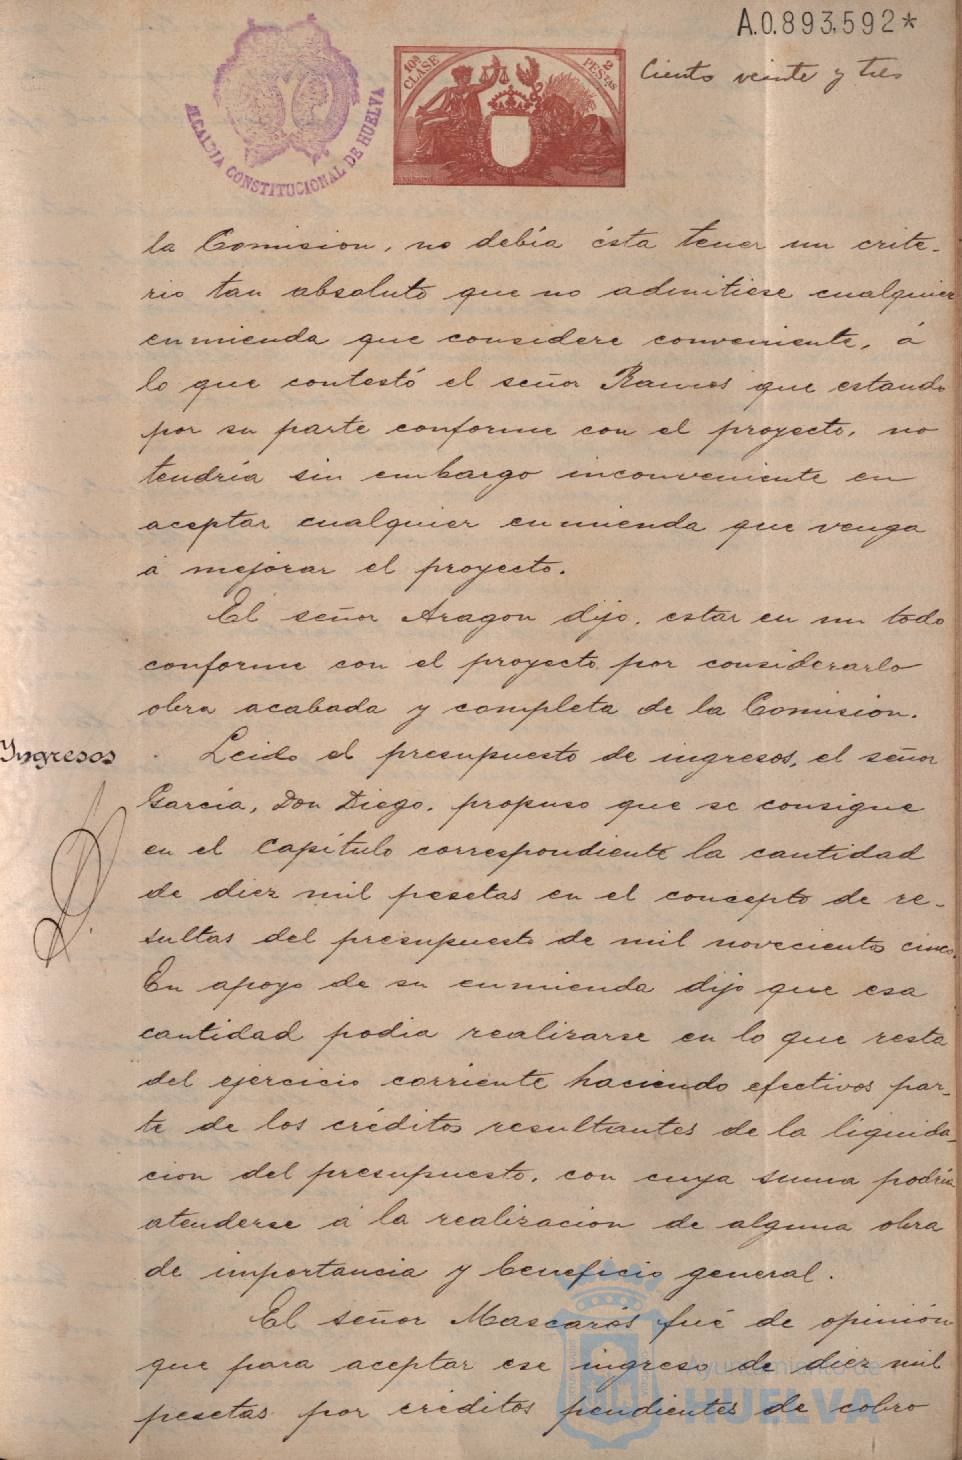 A.0.893,592*
10ª CLASE
2 PESTAS
Ciento veinte y tres
ALCALDIA CONSTITUCIONAL DE HUELVA
la Comision, no debía ésta tener un crite-
rio tan absoluto que no admitiese cualquier
enmienda que considere conveniente, á
lo que contestó el señor Ramos que estando
por su parte conforme con el proyecto, no
tendría sin embargo inconveniente en
aceptar cualquier enmienda que venga
á mejorar el proyecto.
El señor Aragon dijo, estar en un todo
conforme con el proyecto por considerarlo
obra acabada y completa de la Comision.
Ingresos
Leido el presupuesto de ingresos, el señor
García, Don Diego, propuso que se consigne
en el capítulo correspondiente la cantidad
de diez mil pesetas en el concepto de re-
sultas del presupuesto de mil novecientos cinco.
En apoyo de su enmienda dijo que esa
cantidad podia realizarse en lo que resta
del ejercicio corriente haciendo efectivos par-
te de los créditos resultantes de la liquida-
cion del presupuesto, con cuya suma podría
atenderse á la realizacion de alguna obra
de importancia y beneficio general.
El señor Mascarós fué de opinión
que para aceptar ese ingreso de diez mil
pesetas por créditos pendientes de cobro
Ayuntamiento de
HUELVA